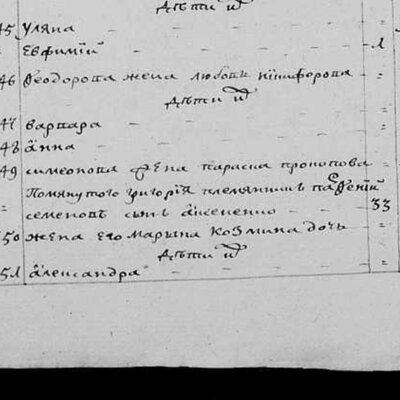 дѣти их
45 уляна
евфимій 1
46 Ѳеодорова жена любовь никифорова
дѣти их
47 варвара
48 анна
49 симеонова жена параска прокопова
Помянутого григорія племянникъ парѳеній
семеновъ сынъ 33
50 жена его марьина козмина дочь
дѣти их
51 александра